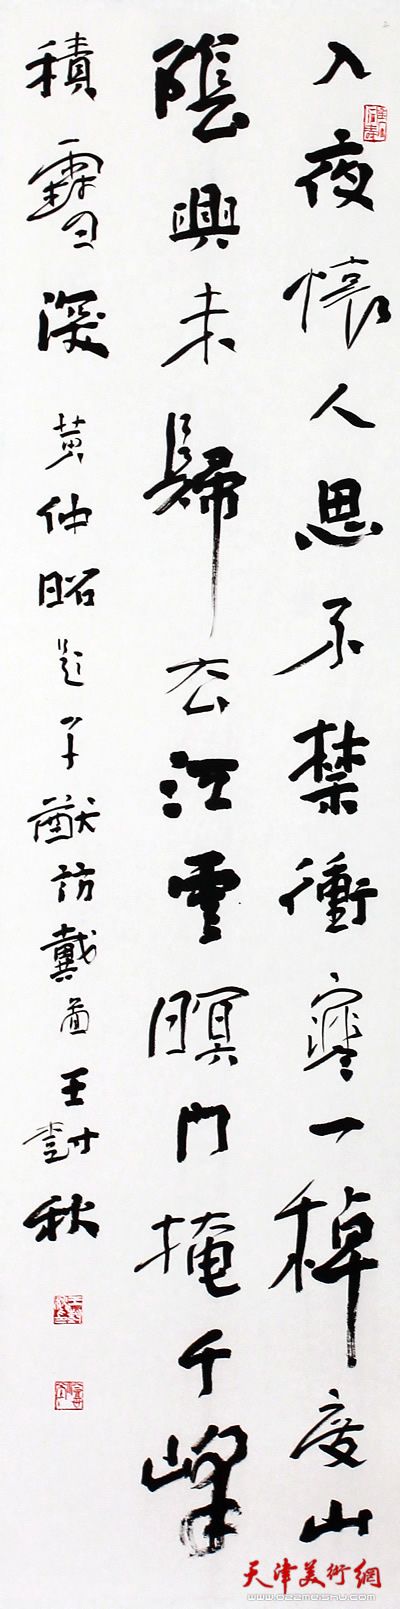 入夜懷人思不禁衝寒一棹度山
陰興未歸去江雲暝門掩千峰
積雪深 黄仲昭題子猷訪戴圖 王尌秋
天津美術網
www.022meishu.com